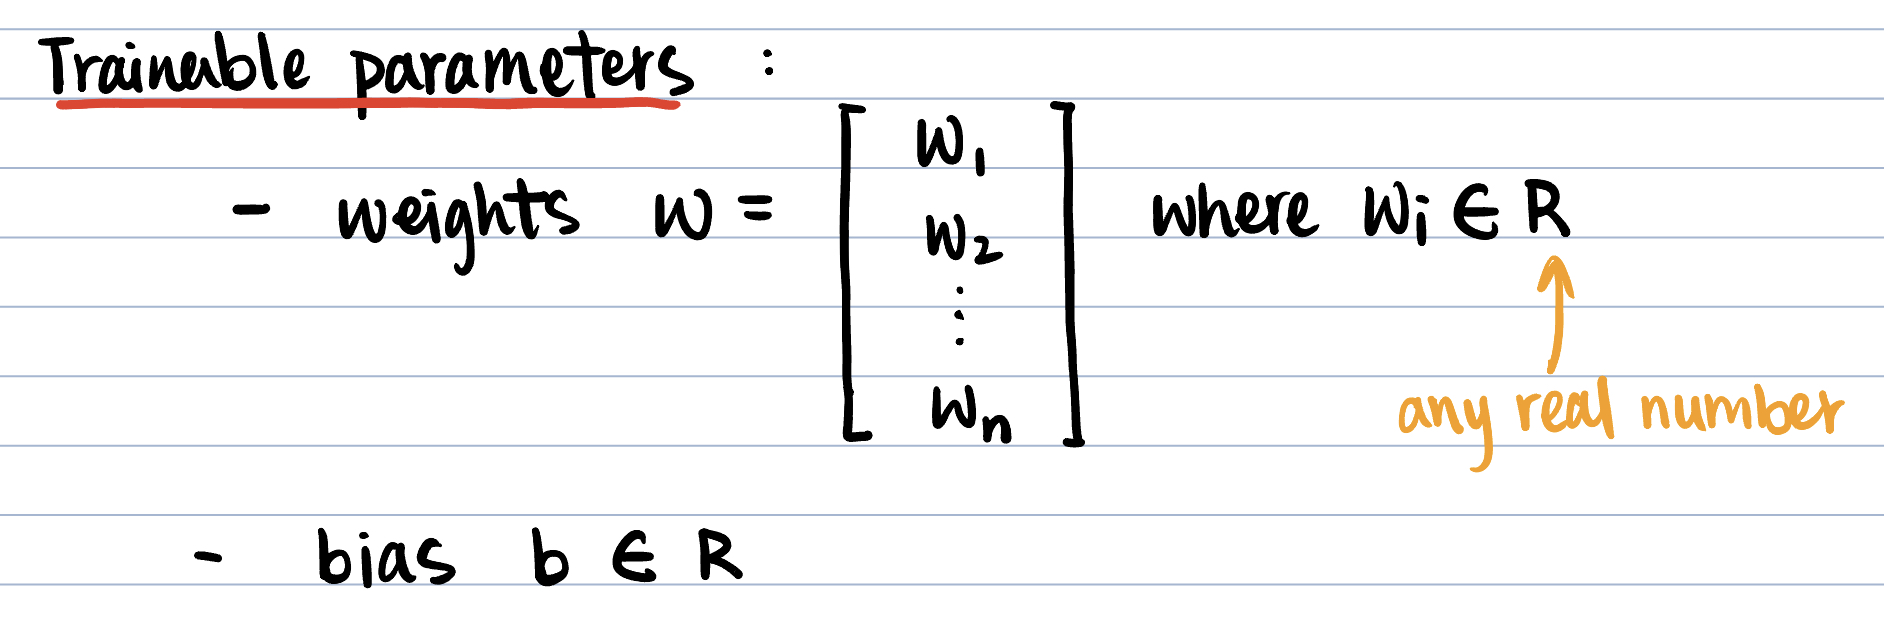 Trainable parameters :
- weights w = [ w₁ w₂ ⋮ wₙ ] where wᵢ ∈ R
any real number
- bias b ∈ R